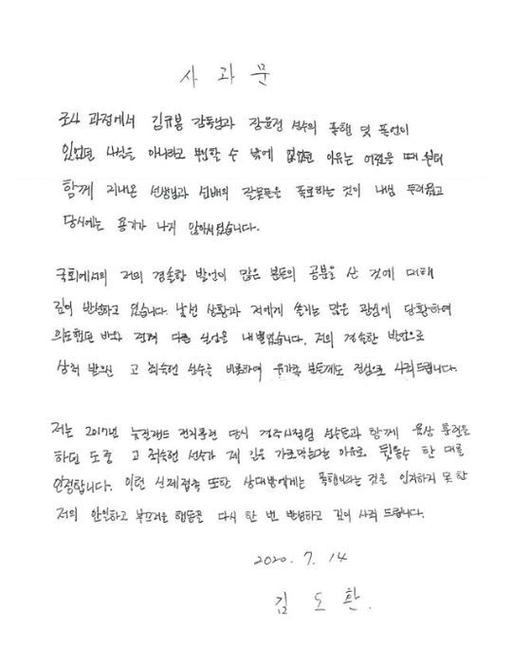 사 과 문
조사 과정에서 김규봉 감독님과 장윤정 선수의 폭행 및 폭언이
있었던 사실을 아니라고 부인할 수 밖에 없었던 이유는 어렸을 때 부터
함께 지내온 선생님과 선배의 잘못들은 폭로하는 것이 내심 두려웠고
당시에는 용기가 나지 않아서였습니다.
국회에서의 저의 경솔한 발언이 많은 분들의 공분을 산 것에 대해
깊이 반성하고 있습니다. 낯선 상황과 저에게 쏠리는 많은 관심에 당황하여
의도했던 바와 전혀 다른 실언을 내뱉었습니다. 저의 경솔한 발언으로
상처 받으신 고 최숙현 선수를 비롯하여 유가족 분들께도 진심으로 사죄드립니다.
저는 2017년 뉴질랜드 전지훈련 당시 경주시청팀 선수들과 함께 육상 훈련을
하던 도중 고 최숙현 선수가 제 길을 가로막는다는 이유로 뒷통수 한 대를
인정합니다. 이런 신체접촉 또한 상대방에게는 폭행이라는 것을 인지하지 못 한
저의 안일하고 부끄러운 행동을 다시 한 번 반성하고 깊이 사죄 드립니다.
2020. 7. 14
김 도 환.